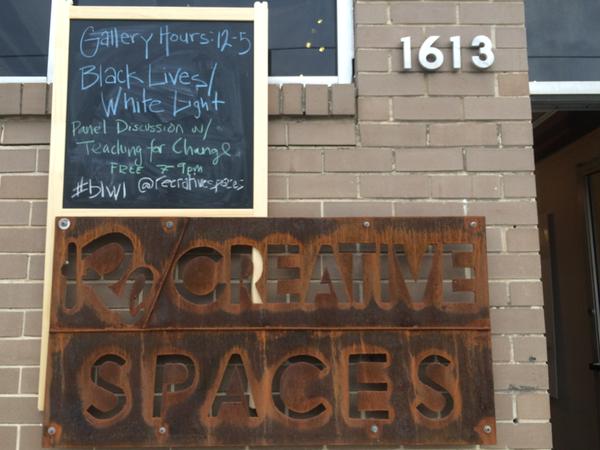 Gallery Hours: 12-5
Black Lives/
White Light
Panel Discussion w/
Teaching for Change
FREE 7-9pm
#blwl @recreativespaces
1613
Re/CREATIVE
SPACES